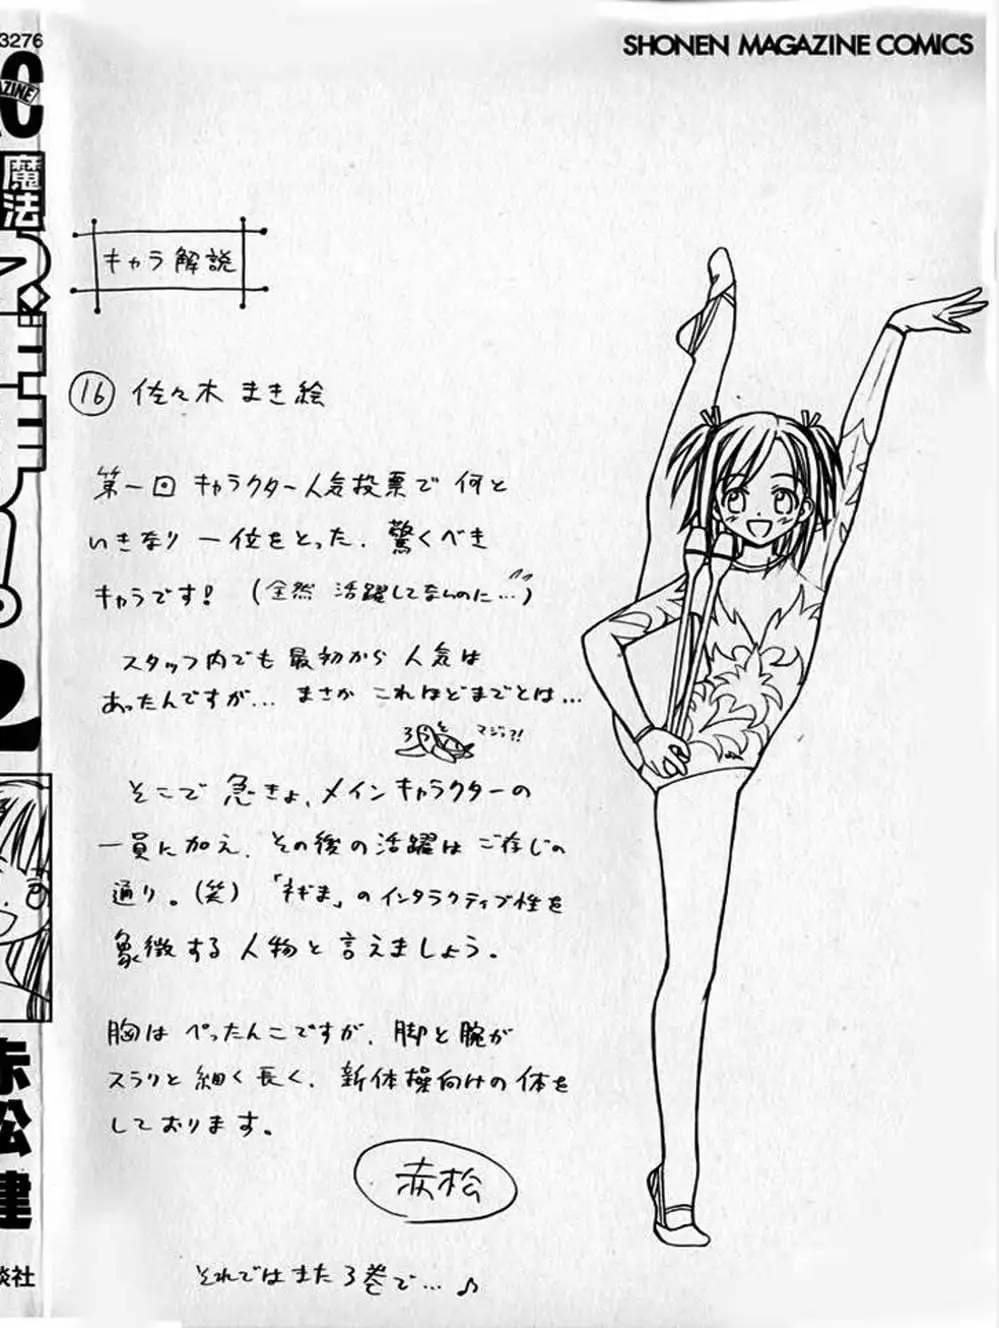 3276
SHONEN MAGAZINE COMICS
魔法
2
赤松 健
談社
キャラ解説
⑯ 佐々木 まき絵
第一回 キャラクター人気投票で 何と
いきなり 一位をとった、驚くべき
キャラです! (全然 活躍してなんのに…)
スタッフ内でも 最初から 人気は
あったんですが… まさか これほどまでとは…
マジっ?!
そこで 急きょ、メインキャラクターの
一員に加え、その後の活躍は ご存じの
通り。(笑) 「ネギま」のインタラクティブ性を
象徴する 人物と 言えましょう。
胸は ぺったんこですが、脚と腕が
スラリと 細く長く、新体操向けの 体を
しております。
赤松
それではまた 3巻で…♪